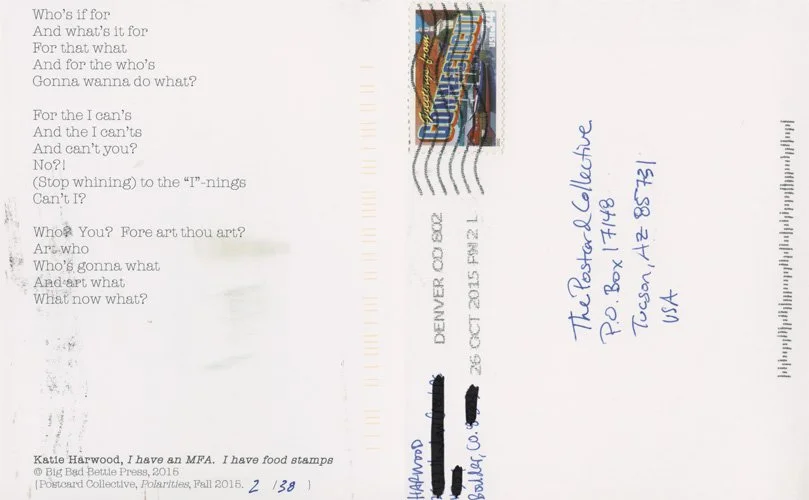 Who's if for
And what's it for
For that what
And for the who's
Gonna wanna do what?
For the I can's
And the I can'ts
And can't you?
No?!
(Stop whining) to the "I"-nings
Can't I?
Who? You? Fore art thou art?
Art who
Who's gonna what
And art what
What now what?
Katie Harwood, I have an MFA. I have food stamps
© Big Bad Bettie Press, 2015
{Postcard Collective, Polarities, Fall 2015. 2 /38 }
Greetings from
CONNECTICUT
DENVER CO 802
26 OCT 2015 PM 2 L
HARWOOD
Boulder, CO.
The Postcard Collective
P.O. Box 17148
Tucson, AZ 85731
USA